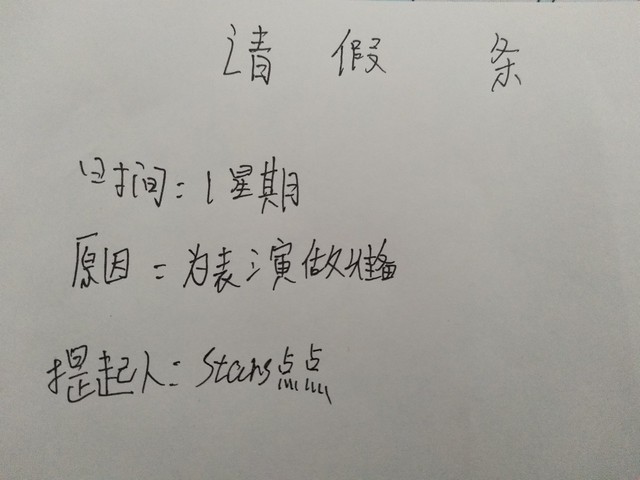 请假条
时间：1星期
原因：为表演做准备
提起人：Stars点点